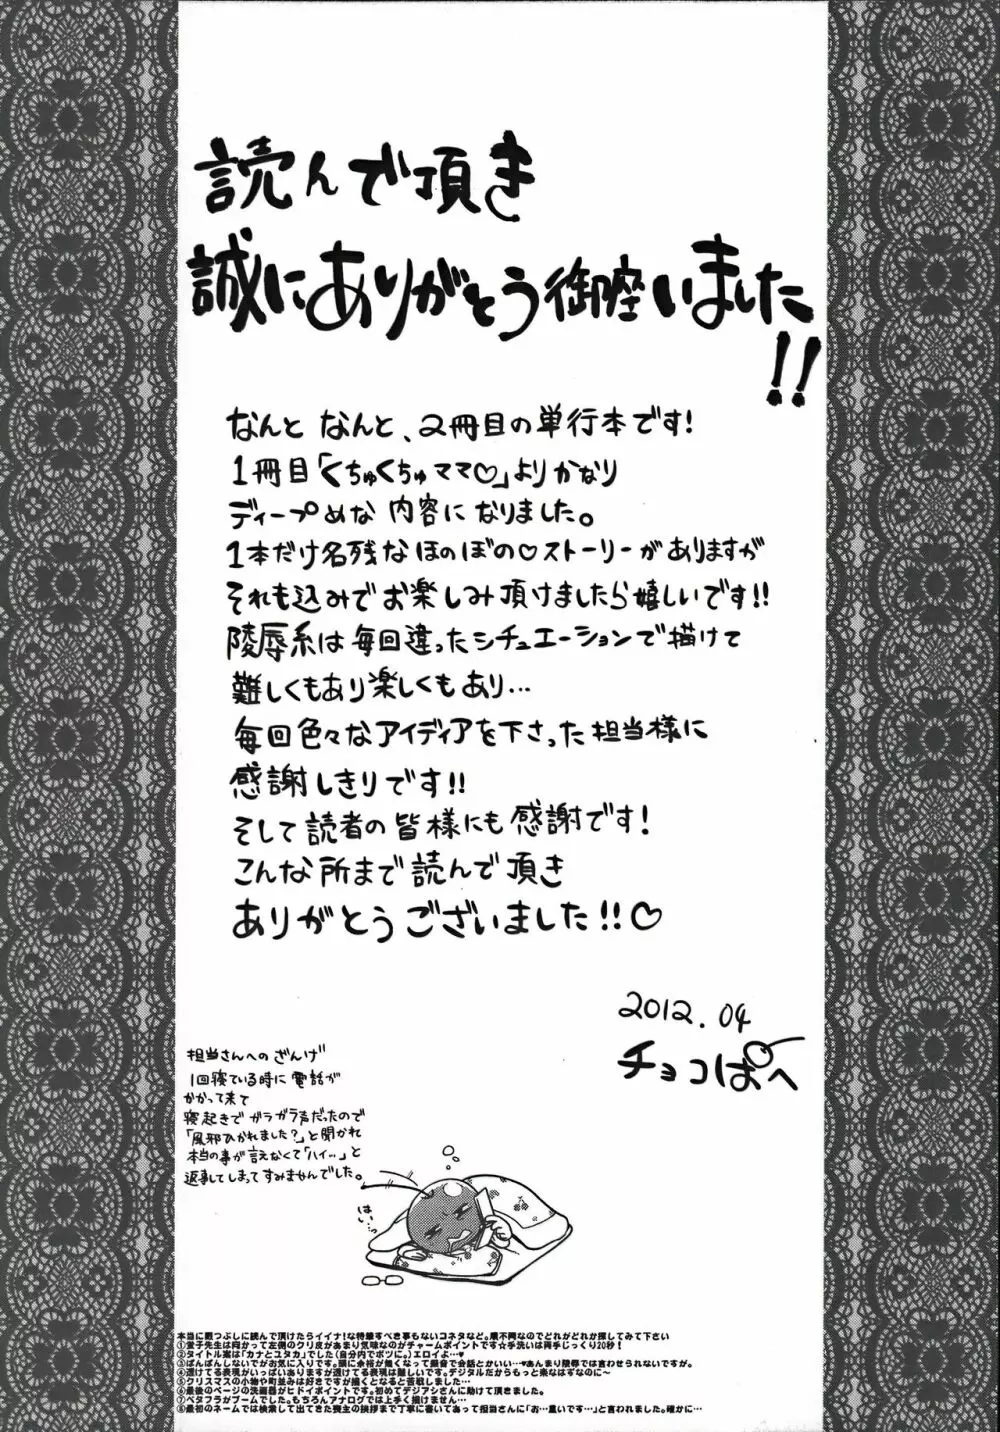 読んで頂き
誠にありがとう御座いました!!
なんと なんと、2冊目の単行本です!
1冊目「くちゅくちゅママ♡」よりかなり
ディープめな 内容になりました。
1本だけ名残なほのぼの♡ストーリーがありますが
それも込みでお楽しみ頂けましたら嬉しいです!!
陵辱系は毎回違ったシチュエーションで描けて
難しくもあり楽しくもあり…
毎回色々なアイディアを下さった担当様に
感謝しきりです!!
そして読者の皆様にも感謝です!
こんな所まで読んで頂き
ありがとうございました!!♡
2012.04
チョコぱへ
担当さんへのざんげ
1回寝ている時に電話が
かかって来て
寝起きでガラガラ声だったので
「風邪ひかれました?」と聞かれ
本当の事が言えなくて「ハイ…」と
返事してしまってすみませんでした。
はい…っ
本当に暇つぶしに読んで頂けたらイイナ!な特筆すべき事もないコネタなど。順不同なのでどれがどれか探してみて下さい
先生は向かって左側のクリ皮があまり気味なのがチャームポイントです☆手洗いは両手じっくり20秒!
②タイトル案は「カナとユタカ」でした(自分内でボツに。)エロイよ…♥
③ぱんぱんしないでがお気に入りです。頭に余裕が無くなって擬音で会話とかいい…♥あんまり陵辱では言わせられないですが。
④透けてる表現がいっぱいありますが透けてる表現は難しいです。デジタルだからもっと楽なはずなのに~
⑤クリスマスの小物や町並みは好きですが描くとなると苦戦しました…
⑥最後のページの洗面器がヒドイポイントです。初めてデジアシさんに助けて頂きました。
⑦ベタフラがブームでした。もちろんアナログでは上手く描けません…
⑧最初のネームでは検索して出てきた喪主の挨拶まで丁寧に書いてあって担当さんに「お…重いです…」と言われました。確かに…